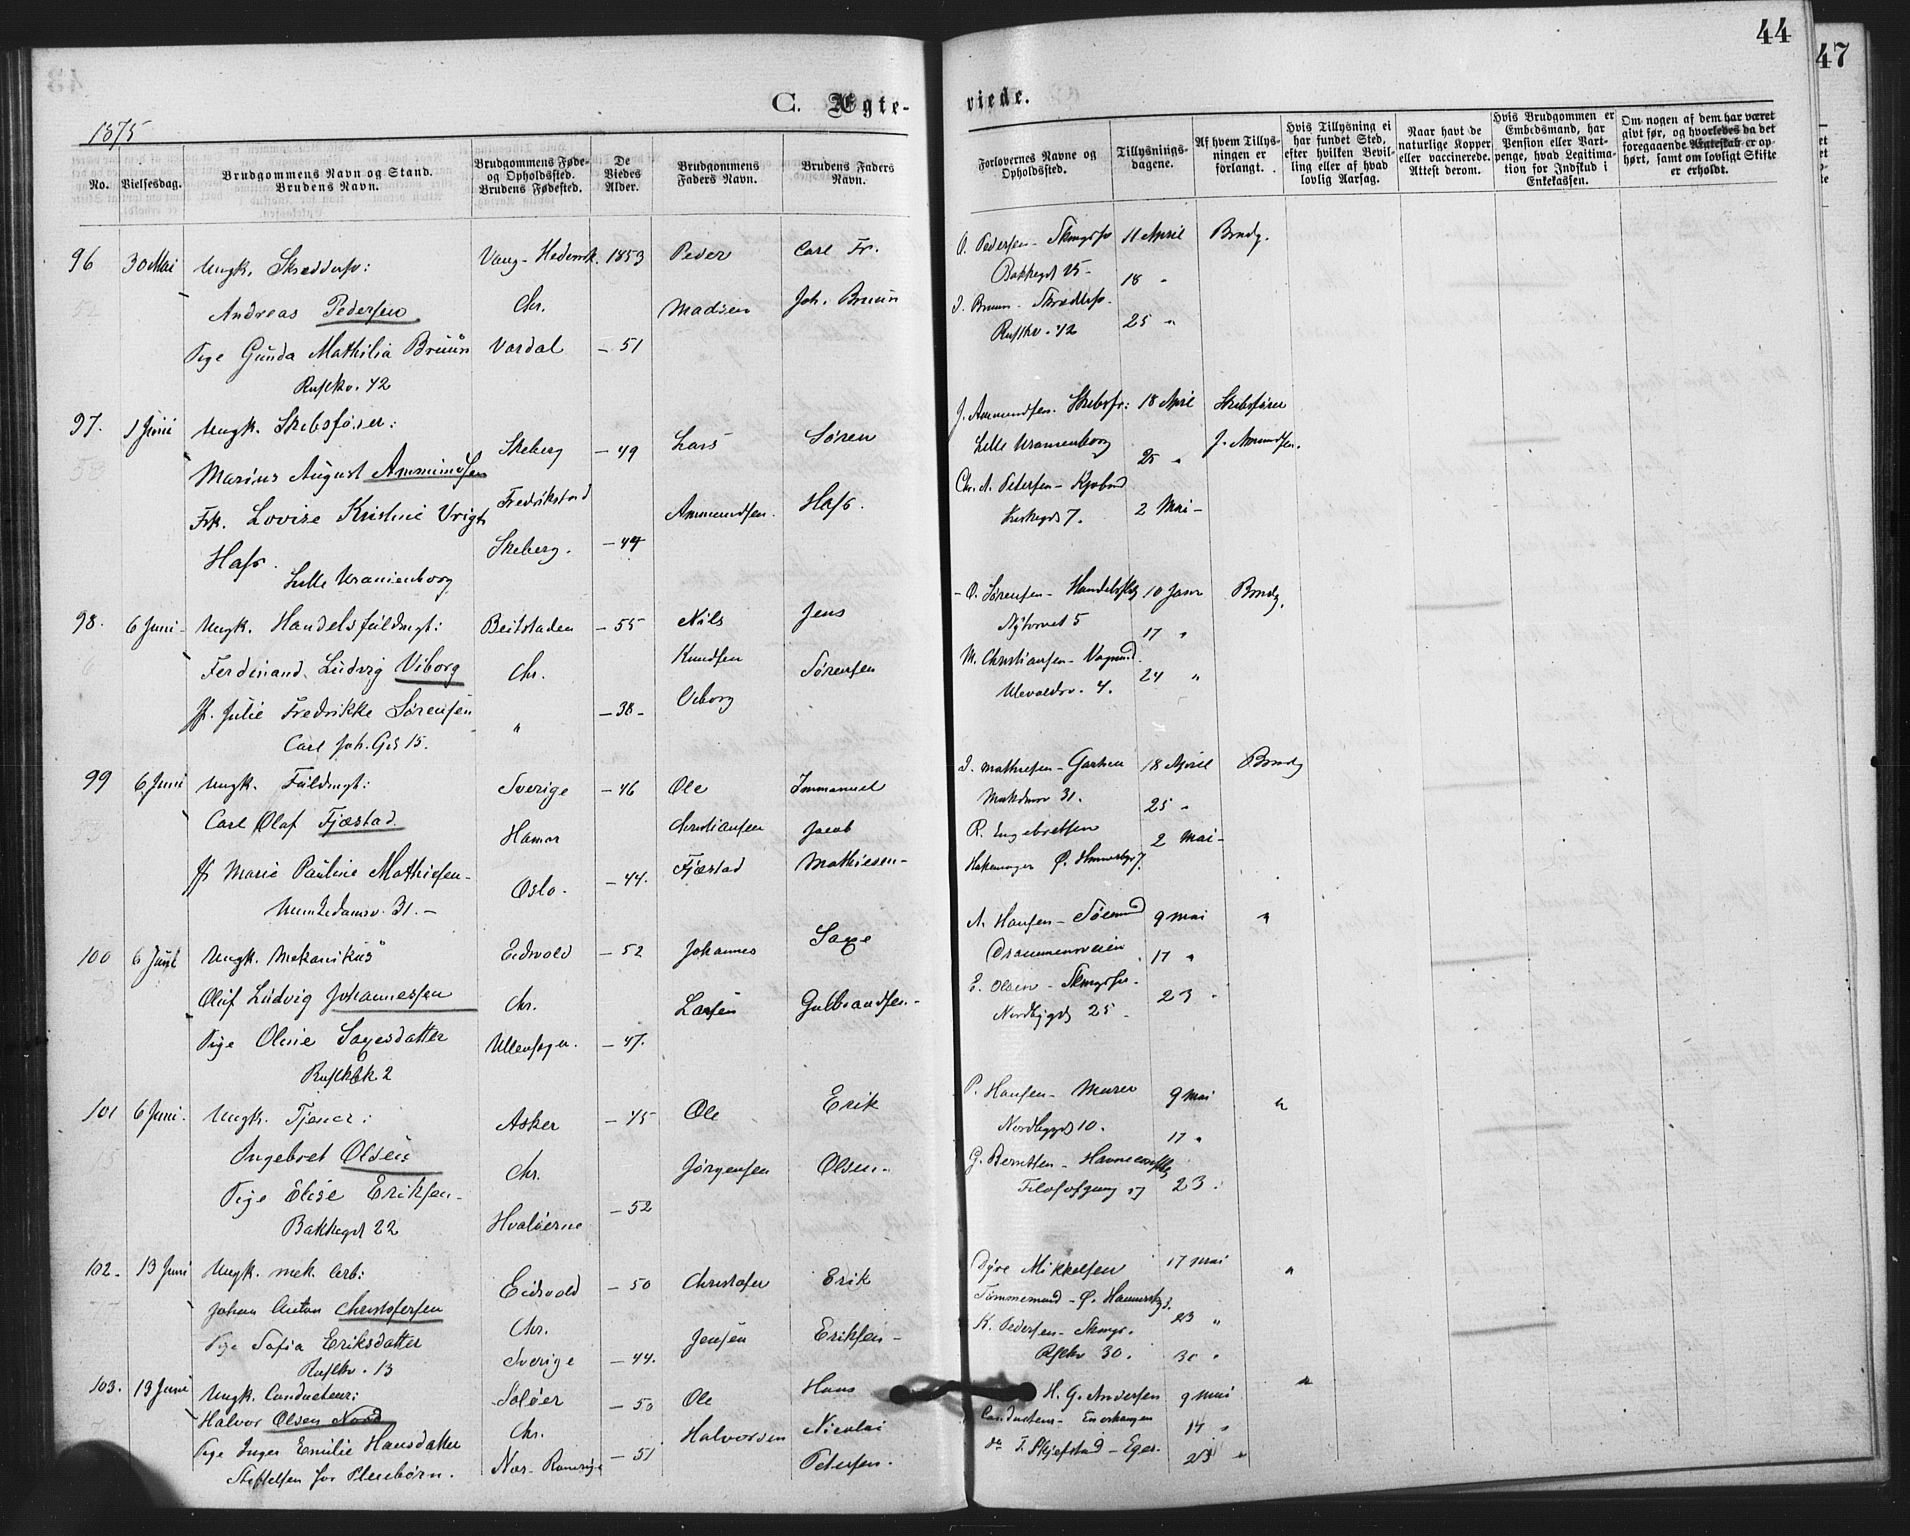 44
47
C. Ægte-
viede.
1875
No.
Vielsesdag.
Brudgommens Navn og Stand.
Brudens Navn.
Brudgommens Føde-
og Opholdssted.
Brudens Fødested.
De
Viedes
Alder.
Brudgommens
Faders Navn.
Brudens Faders
Navn.
Forlovernes Navne og
Opholdssted.
Tillysnings-
dagene.
Af hvem Tillys-
ningen er
forlangt.
Hvis Tillysning ei
har fundet Sted,
efter hvilken Bevil-
ling eller af hvad
lovlig Aarsag.
Naar havt de
naturlige Kopper
eller vaccinerede.
Attest derom.
Hvis Brudgommen er
Embedsmand, har
Pension eller Vart-
penge, hvad Legitima-
tion for Indskud i
Enkekassen.
Om nogen af dem har været
givt før, og hvorledes da det
foregaaende Ægteskab er op-
hørt, samt om lovligt Skifte
er erholdt.
96 30 Mai Ungk. Skrædersv: Vang- Hedemk. 1853 Peder Carl Fr. O. Pedersen- 11 April Brudg.
Bakkegd 15- 18 "
Andreas Pedersen Chr. Madsen Joh. Bruun J. Bruun- Skrædersv.
Ruslkv. 42 25 "
Pige Gunda Mathilia Bruun Vardal - 51
Ruslkv. 42
97. 1 Juni Ungk. Skibsfører: Skeberg - 49 Lars Søren J. Ammundsen. Skibsfr: 18 April Skibsfører
Lille Uranienborg 25 " J. Amundsen.
Marius August Ammundsen Fredrikstad
Chr. A. Petersen-
Frk. Lovise Kristine Vrigt Ammundsen. Hafs. 7. 2 Mai-
Hafs. Skeberg. - 49
Lille Uranienborg
98. 6 Juni- Ungk. Handelsfuldmgt: Beitstaden - 55 Nils Jens O. Sørensen- 10 Janr Brudg.
Nytorvet 5 17 "
Ferdinand Ludvig Viborg Chr. Knudsen Sørensen M. Christiansen- Vognmd.
Ulevoldsv. 4. 24 "
Jf. Julie Fredrikke Sørensen " - 38- Viborg
Carl Joh. Gd 15.
99 6 Juni Ungk. Fuldmgt: Sverige - 46 Ole Immanuel J. Mathiesen- 18 April Brudg
31. 25 "
Carl Olaf Fjæstad. Hamar Christiansen Jacob R. Engebretsen 2 Mai-
Jf Marie Pauline Mathiesen- Oslo- - 44. Fjæstad Mathiesen- 7.
Munkedamsv. 31.-
100 6 Juni Ungk. Mekanikus Eidsvold - 52 Johannes Saxe A. Hansen- 9 Mai "
Drammensveien 17 "
Oluf Ludvig Johannessen Chr. Larsen Gulbrandsen- E. Olsen- 23 "
Nordbygd 25-
Pige Oline Saxesdatter Ullensager. - 47.
2
101 6 Juni. Ungk. Tjener: Asker - 45 Ole Erik P. Hansen- Murer 9 Mai "
Nordbygd 10. 17 "
Ingebret Olsen Chr. Jørgensen Olsen- G. Berntsen-
23.
Pige Elise Eriksen- Hvaløerne - 52
Bakkegd 22
102- 13 Juni Ungk. mek. Arb: Eidsvold - 50 Christofer Erik Dyre Mikkelsen 17 Mai "
Tømmermand- Ø. 23 "
Johan Anton Christofersen Chr. Jensen Eriksen- K. Pedersen-
Pige Sofia Eriksdatter Sverige - 44. 30. 30 "
Ruslkv. 13
103. 13 Juni Ungk. Conducteur: Soløer - 50 Ole Hans H. G. Andersen 9 Mai "
Halvor Olsen Nord Chr. Halvorsen Nicolai Conducteur- 17 "
Pige Inger Emilie Hansdatter Næs- Romerige - 51 Petersen. do T. Skjefstad- Eger. 23 "
Stiftelsen for Pleiebørn.